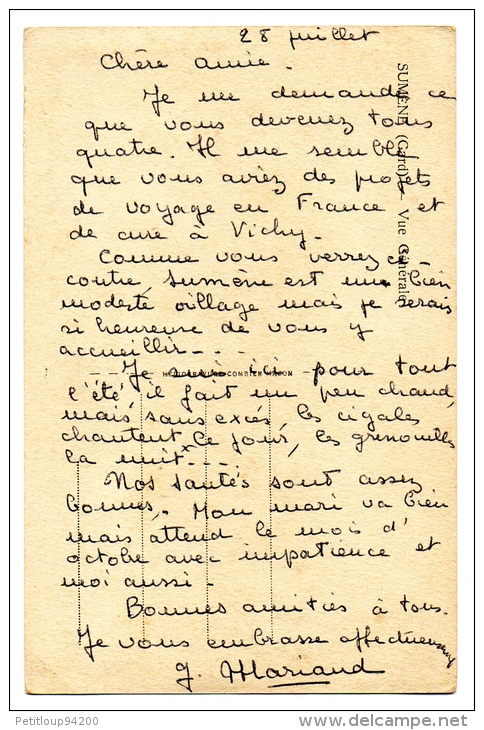 28 juillet
Chère amie.
Je me demande ce
que vous devenez tous
quatre. Il me semble
que vous aviez des projets
de voyage en France et
de cure à Vichy.
Comme vous verrez ci-
contre, Sumène est un bien
modeste village mais je serais
si heureuse de vous y
accueillir - - - -
Je suis ici pour tout
l'été, il fait un peu chaud,
mais sans excès, les cigales
chantent le jour, les grenouilles
la nuit - - - -
Nos santés sont assez
bonnes, - Mon mari va bien
mais attend le mois d'
octobre avec impatience et
moi aussi -
Bonnes amitiés à tous.
Je vous embrasse affectueusement
J. Mariaud
SUMÈNE (Gard) — Vue Générale
HÉLIOGRAVURE COMBIER MACON
Petitloup94200
www.delcampe.net